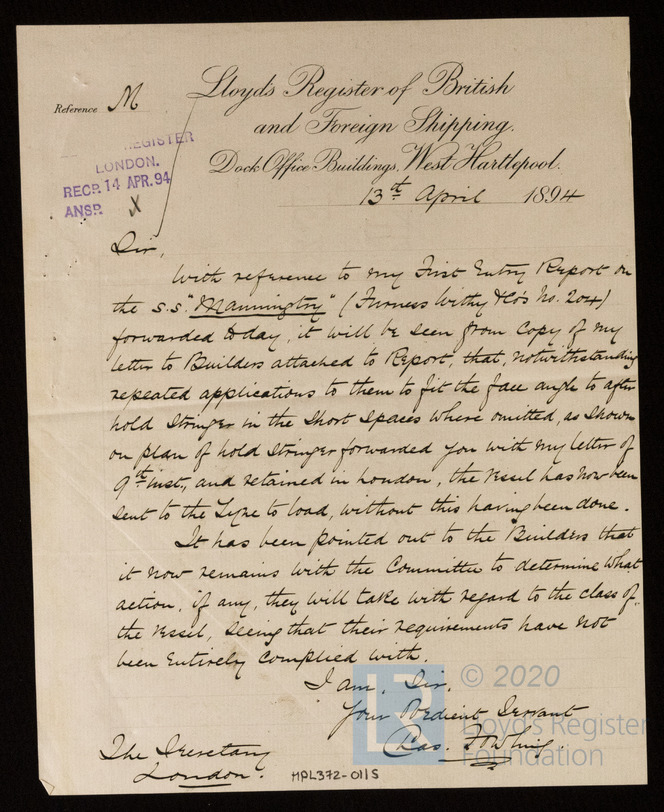 Reference M
Lloyd's Register of British
and Foreign Shipping.
Dock Office Buildings, West Hartlepool.
REGISTER
LONDON.
RECD. 14 APR. 94
ANSD. X
13th April 1894
Sir,
With reference to my First Entry Report on
the S.S. "Manningtry" (Furness Withy & Co's No. 204)
forwarded today, it will be seen from copy of my
letter to Builders attached to Report, that, notwithstanding
repeated applications to them to fit the face angle to after
hold Stringer in the short spaces where omitted, as shown
on plan of hold Stringer forwarded you with my letter of
9th inst, and retained in London, the vessel has now been
sent to the Tyne to load, without this having been done.
It has been pointed out to the Builders that
it now remains with the Committee to determine what
action, if any, they will take with regard to the class of
the vessel, seeing that their requirements have not
been entirely complied with.
I am, Sir,
Your Obedient Servant
Chas.
The Secretary
London.
HPL372-01/S
LR
© 2020
Lloyd's Register
Foundation